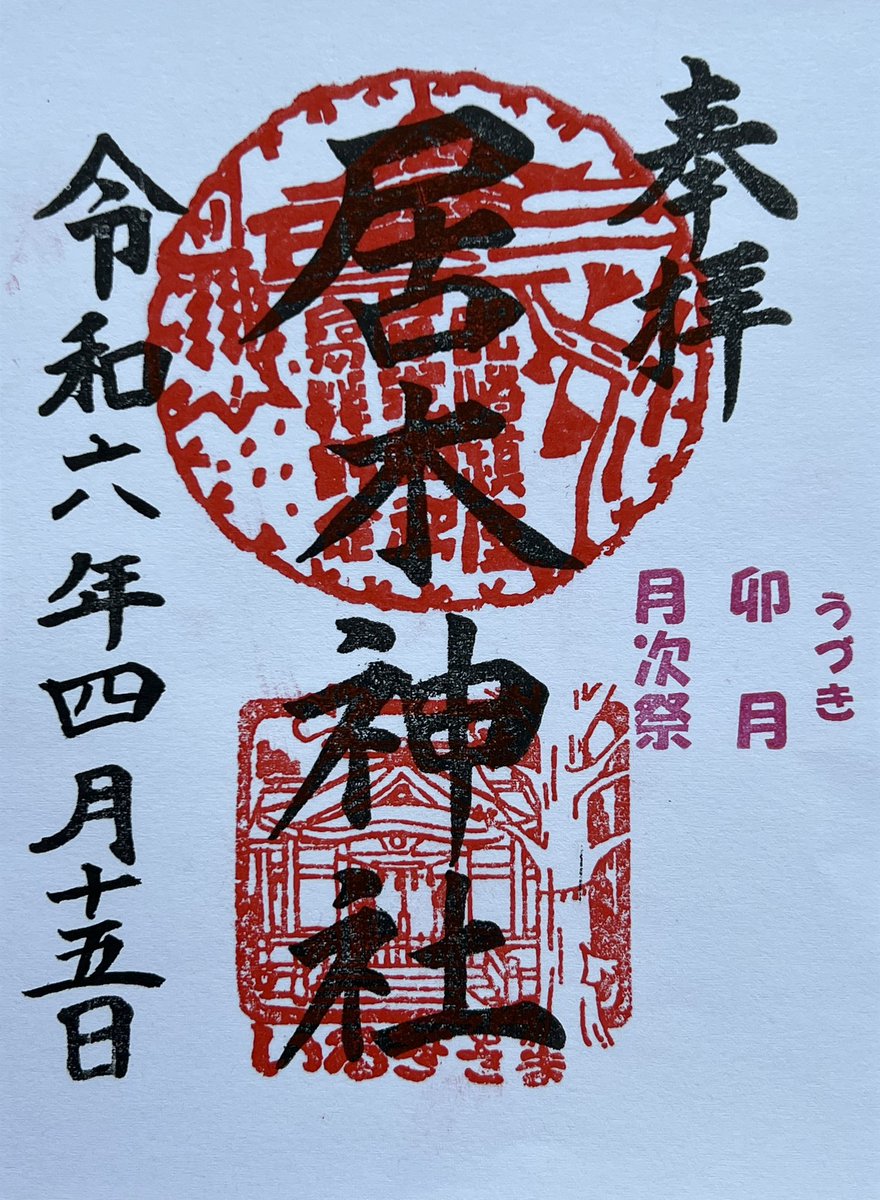 奉拝
うづき
卯月
月次祭
居木神社
いるぎさま
令和六年四月十五日